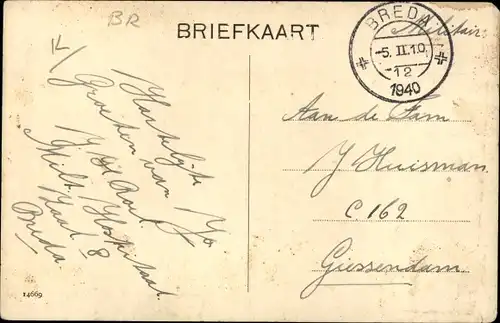 BR
BRIEFKAART
BREDA
-5. II.10.
-12
1940
Militair.
Hartelijke
Groeten van Jo
Milt. Hospitaal.
Zaal 8
Breda
Aan de Fam
J Huisman.
C 162
Giessendam.
14669